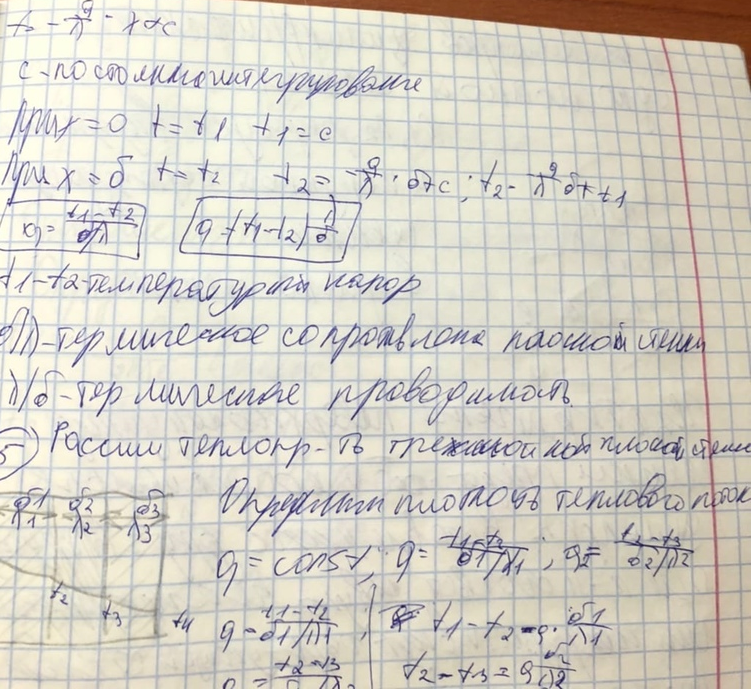 t = -q/λ · x + c
c - постоянная интегрирование
При x = 0 t = t1 t1 = c
При x = δ t = t2 t2 = -q/λ · δ + c; t2 = -q/λ δ + t1
q = (t1-t2)/(δ/λ) q = (t1-t2) λ/δ
t1-t2-температурный напор
δ/λ-термическое сопротивление плоской стенки
λ/δ-термическое проводимость.
5) Рассмм теплопр-ть трехслойной плоской стенки
δ1 δ2 δ3 Определим плотность теплового поток
λ1 λ2 λ3
q = const, q = (t1-t2)/(δ1/λ1); q = (t2-t3)/(δ2/λ2)
t2 t3 t4
q = (t1-t2)/(δ1/λ1); t1-t2 = q · δ1/λ1
q = (t2-t3)/(δ2/λ2) t2-t3 = q δ2/λ2